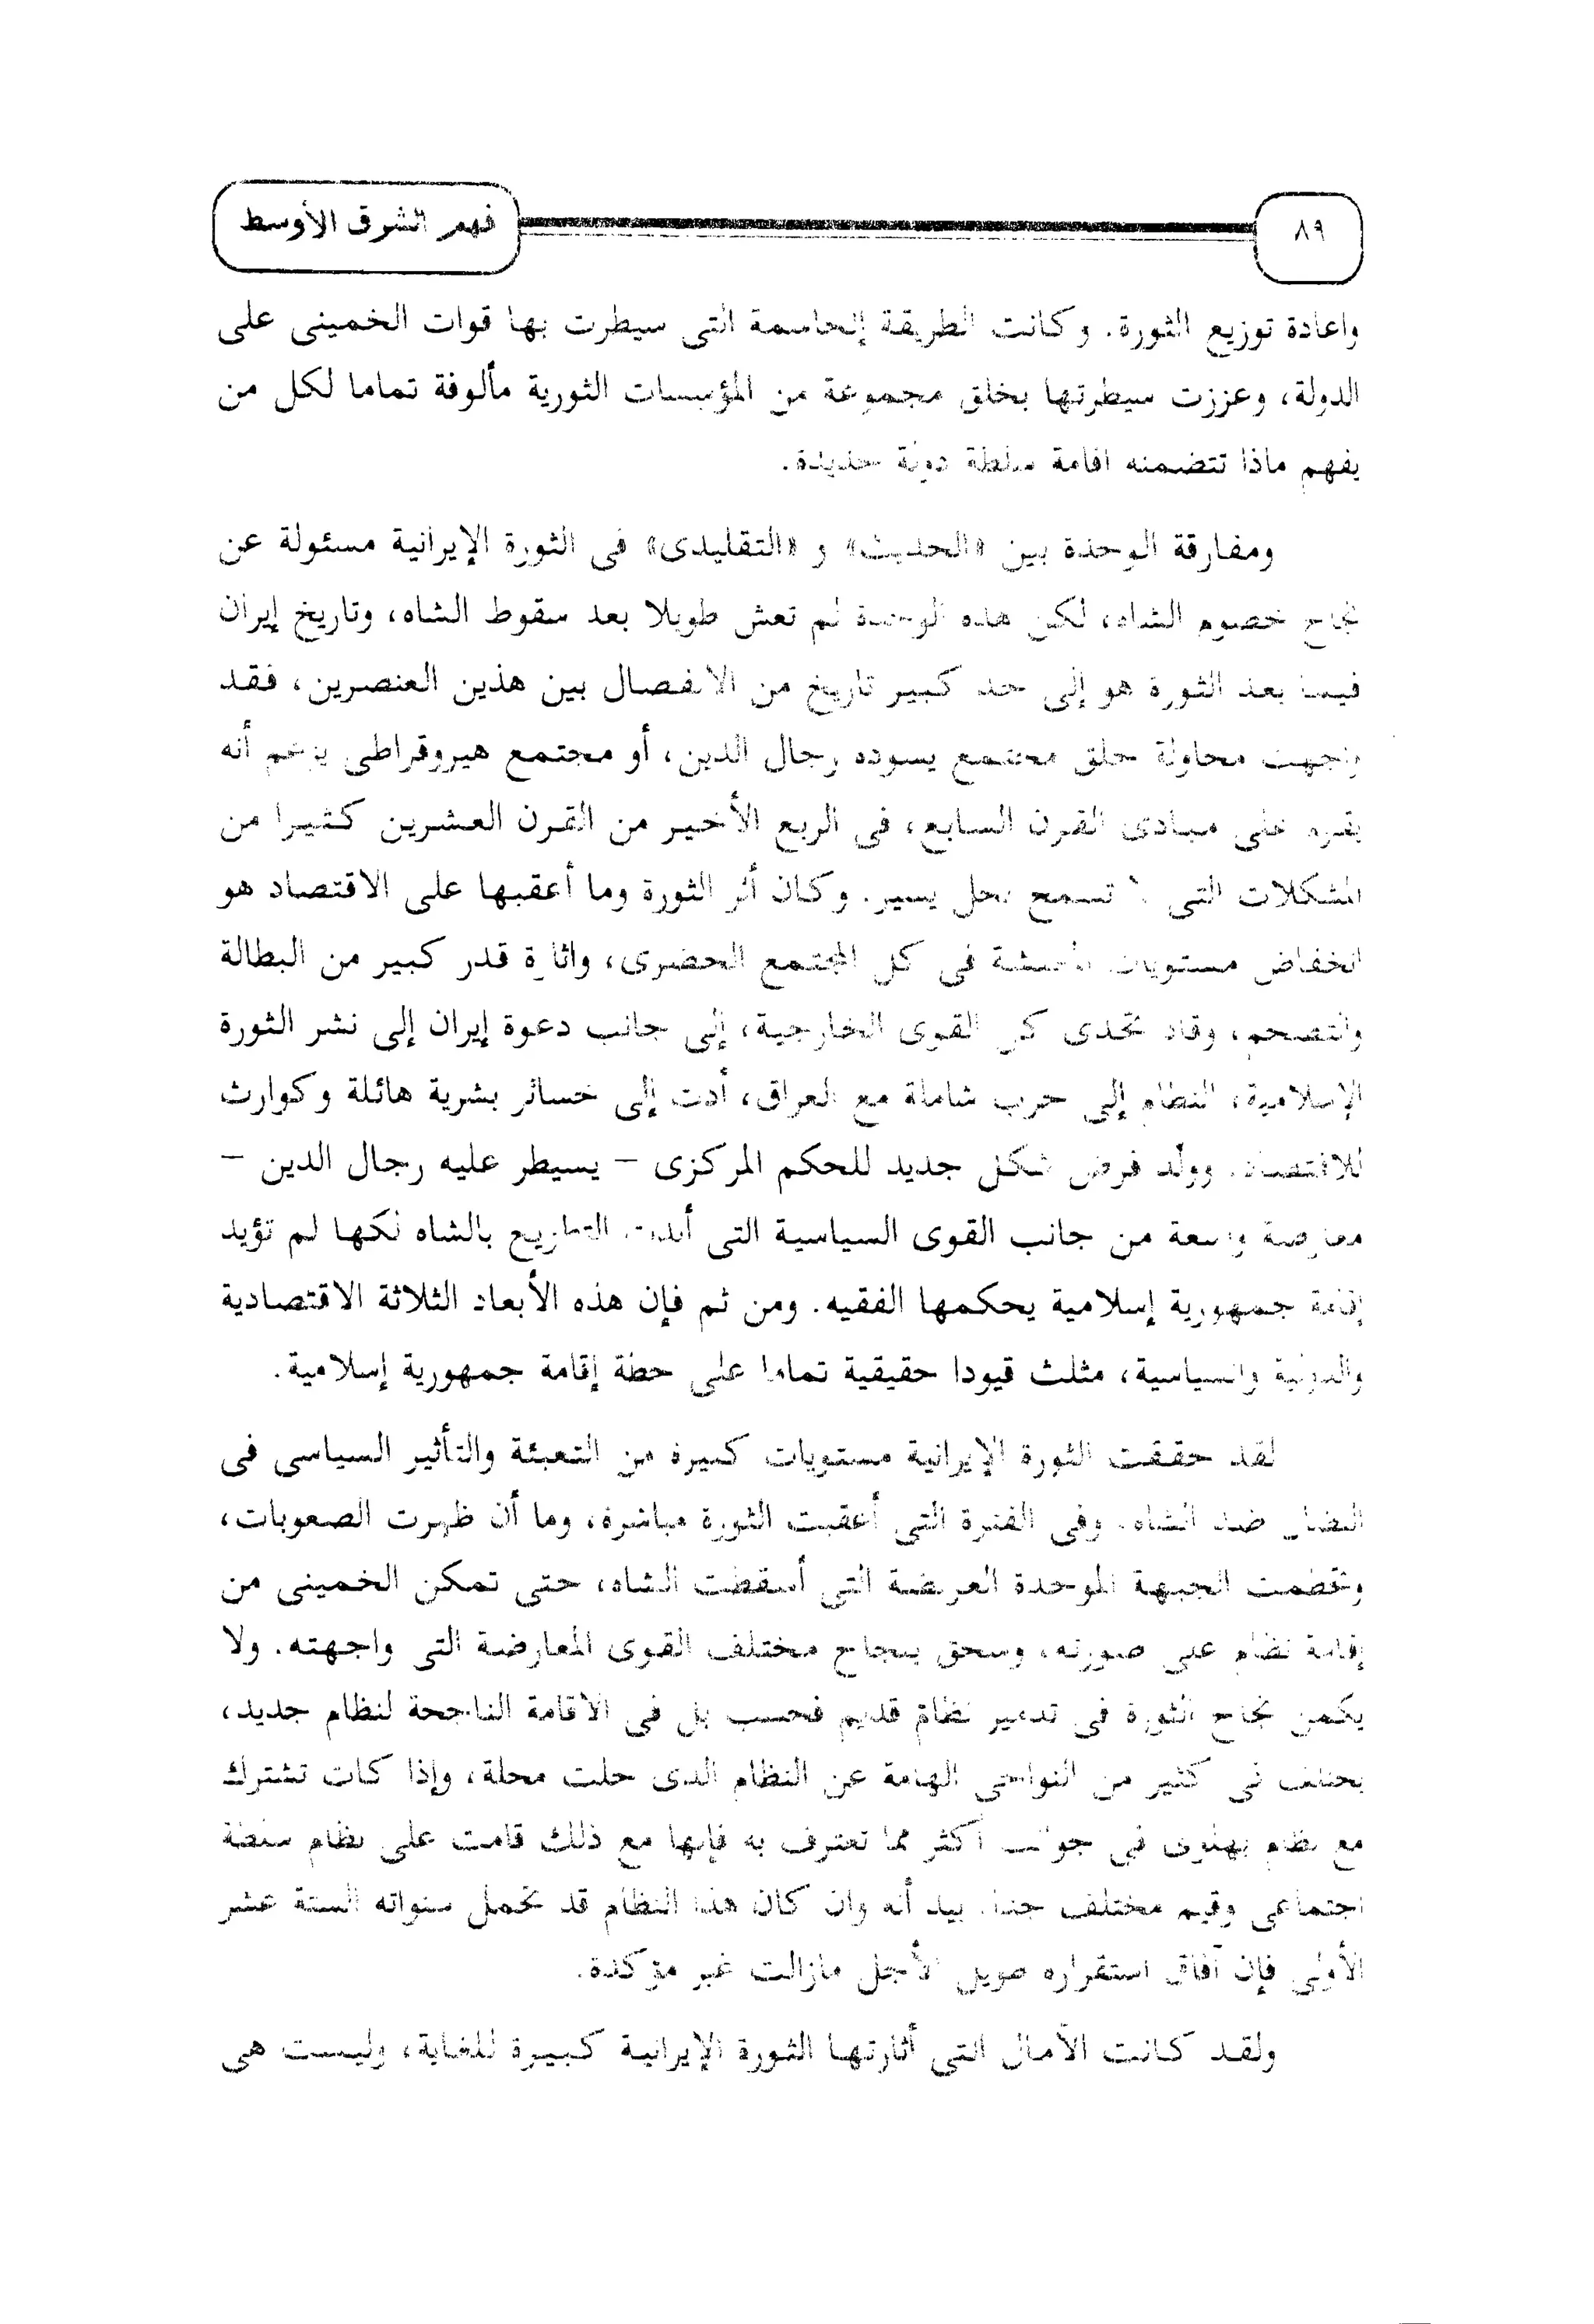 ٨٩
فهم الشرق الأوسط
واعادة توزيع الثورة. وكانت الطريقة الحاسمة التى سيطرت بها قوات الخمينى على
الدولة، وعززت سيطرتها بخلق مجموعة من المؤسسات الثورية مألوفة تماما لكل من
يفهم ماذا تتضمنه اقامة سلطة دولة جديدة.
ومفارقة الوحدة بين «الحديث» و «التقليدى» فى الثورة الإيرانية مسئولة عن
نجاح خصوم الشاه، لكن هذه الوحدة لم تعش طويلا بعد سقوط الشاه، وتاريخ إيران
فيما بعد الثورة هو إلى حد كبير تاريخ من الانفصال بين هذين العنصرين، فقد
واجهت محاولة خلق مجتمع يسوده رجال الدين، أو مجتمع هيروقراطى يزعم أنه
يقوم على مبادى القرن السابع، فى الربع الأخير من القرن العشرين كثيرا من
المشكلات التى لا تسمح بحل يسير. وكان أثر الثورة وما أعقبها على الاقتصاد هو
انخفاض مستويات المعيشة فى كل المجتمع الحضرى، واثارة قدر كبير من البطالة
والتضخم، وقاد تحدى كل القوى الخارجية، إلى جانب دعوة إيران إلى نشر الثورة
الإسلامية، النظام إلى حرب شاملة مع العراق، أدت إلى خسائر بشرية هائلة وكوارث
للاقتصاد. وولد فرض شكل جديد للحكم المركزى - يسيطر عليه رجال الدين -
معارضة واسعة من جانب القوى السياسية التى أيدت التطويح بالشاه لكنها لم تؤيد
إقامة جمهورية إسلامية يحكمها الفقيه. ومن ثم فإن هذه الأبعاد الثلاثة الاقتصادية
والدولية والسياسية، مثلث قيودا حقيقية تماما على خطة إقامة جمهورية إسلامية.
لقد حققت الثورة الإيرانية مستويات كبيرة من التعبئة والتأثير السياسى فى
النضال ضد الشاه. وفى الفترة التى أعقبت الثورة مباشرة، وما أن ظهرت الصعوبات،
وتحطمت الجبهة الموحدة العريضة التى أسقطت الشاه، حتى تمكن الخمينى من
إقامة نظام على صورته، وسحق بنجاح مختلف القوى المعارضة التى واجهته. ولا
يكمن نجاح الثورة فى تدمير نظام قديم فحسب بل فى الاقامة الناجحة لنظام جديد،
يختلف فى كثير من النواحى الهامة عن النظام الذى حلت محلة، وإذا كانت تشترك
مع نظام بهلوى فى جوانب أكثر مما تعترف به فإنها مع ذلك قامت على نظام سلطة
اجتماعى وقيم مختلف جدا. بيد أنه وان كان هذا النظام قد تحمل سنواته الستة عشر
الأولى فإن آفاق استقراره طويل الأجل مازالت غير مؤكدة.
ولقد كانت الآمال التى أثارتها الثورة الإيرانية كبيرة للغاية، وليست هى